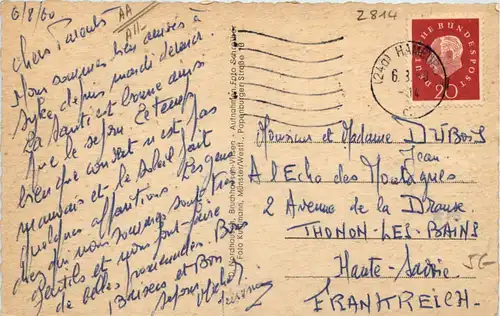 6/8/60
AA
All-
2814
Chers Parents
Nous sommes bien arrivés à
Syke depuis mardi dernier.
La santé est bonne ainsi
que le séjour. Le temps
bien que couvert n'est pas
mauvais et le soleil fait
quelques apparitions. Les gens
chez qui nous sommes sont très
gentils et nous font faire
de belles promenades. Bons
Baisers et Bon
séjour
DEUTSCHE BUNDESPOST
20
(24a) HAMB
6.8.
Nordhausen, Bruchhausen-Vilsen - Aufnahmen: Foto Schröder
Foto Kiepenheuer, Münster/Westf., Papenburger Straße 18
Monsieur et Madame DUBOIS
Jean
A l'Echo des Montagnes
2 Avenue de la Dranse
THONON-LES-BAINS
Haute-Savoie
FRANKREICH.